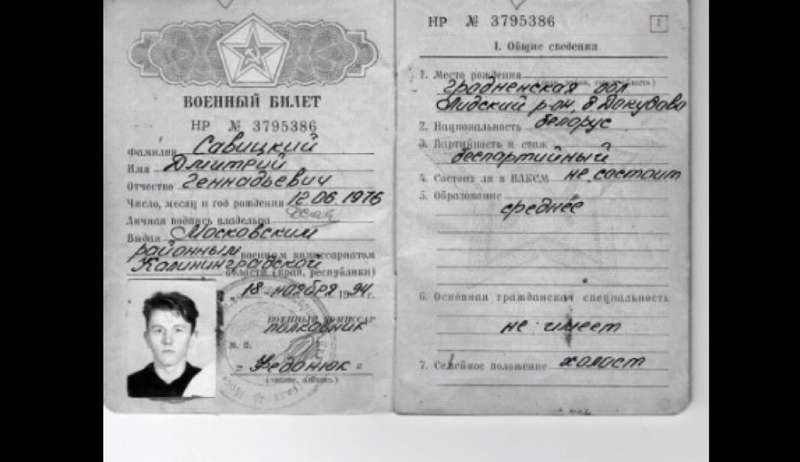 ВОЕННЫЙ БИЛЕТ
НР № 3795386
Фамилия Савицкий
Имя Дмитрий
Отчество Геннадьевич
Число, месяц и год рождения 12.06.1976
Личная подпись владельца
Выдан Московским
районным военным комиссариатом
Калининградской области (края, республики)
18 ноября 1994г.
ВОЕННЫЙ КОМИССАР
полковник
М. П.
"Федонюк"
НР № 3795386
1
I. Общие сведения
1. Место рождения
Гродненская обл
Лидский р-он, д Докудово
2. Национальность белорус
3. Партийность и стаж
беспартийный
4. Состоит ли в ВЛКСМ не состоит
5. Образование
среднее
6. Основная гражданская специальность
не имеет
7. Семейное положение холост